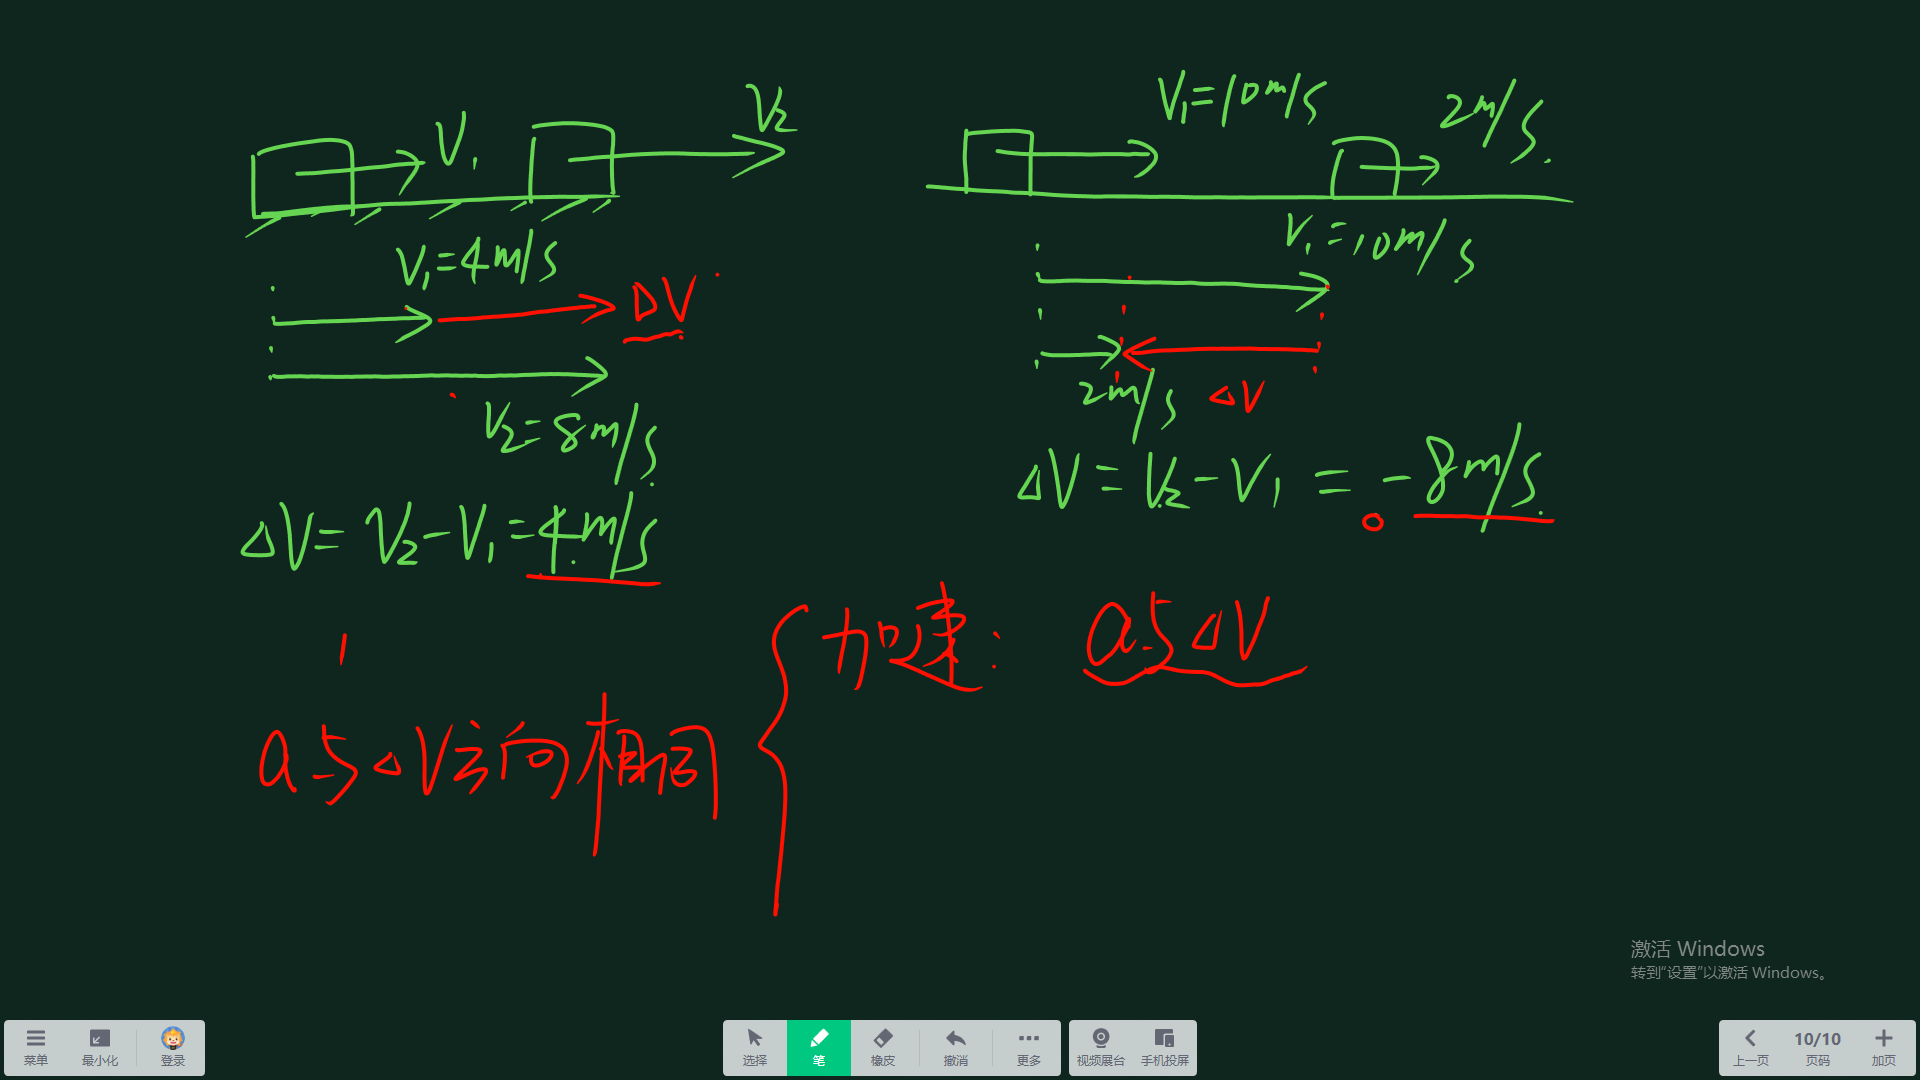 V₁
V₂
V₁=4m/s
ΔV
V₂=8m/s
ΔV=V₂-V₁=4m/s
V₁=10m/s
2m/s
V₁=10m/s
2m/s
ΔV
ΔV=V₂-V₁=-8m/s
a与ΔV方向相同
加速: a与ΔV
激活 Windows
转到“设置”以激活 Windows。
菜单 最小化 登录 选择 笔 橡皮 撤消 更多 视频展台 手机投屏 上一页 10/10 页码 加页